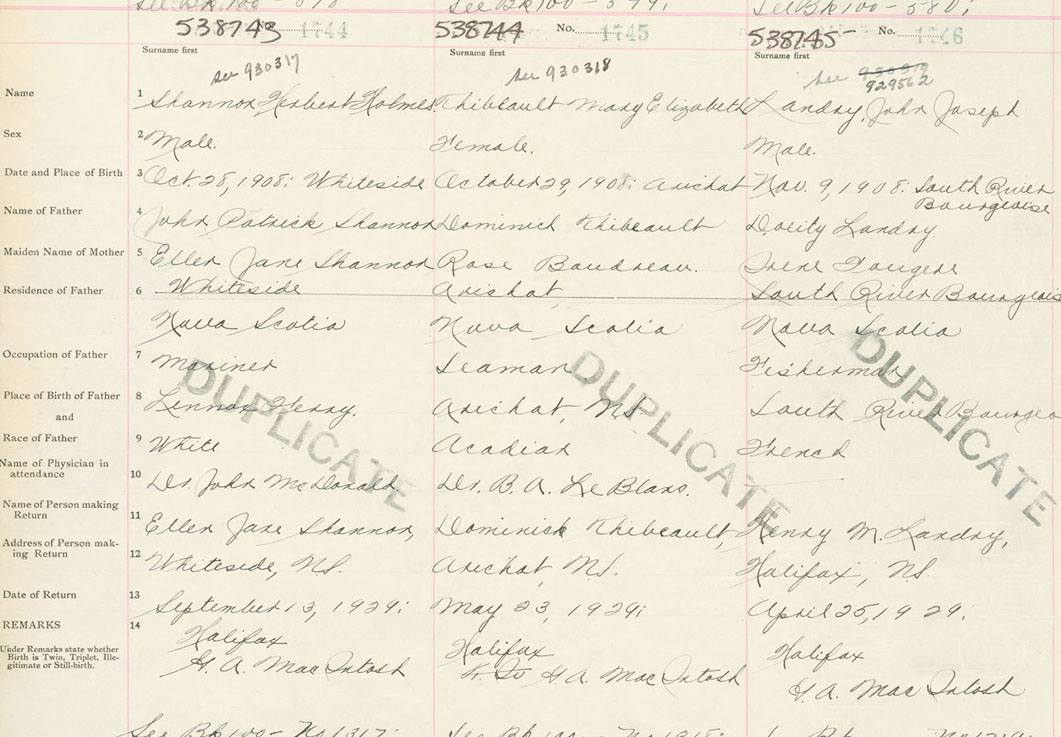 See Bk 100 - See Bk 100 - See Bk 100 - 580;
538743 1744 538744 No. 1745 538745 No. 1746
Surname first Surname first Surname first
see 930317 see 930318 see 930319
929562
Name 1 Shannon, Herbert Holmes. Thibeault Mary Elizabeth Landry, John Joseph
Sex 2 Male. Female. Male.
Date and Place of Birth 3 Oct. 28, 1908: Whiteside October 29, 1908: Arichat Nov. 9, 1908: South River
Bourgeoise
Name of Father 4 John Patrick Shannon Dominick Thibeault Landry.
Maiden Name of Mother 5 Ellen Jane Shannon Rose Boudreau. Irene Fougere
Residence of Father 6 Whiteside Arichat, South River Bourgeois
Nova Scotia Nova Scotia Nova Scotia
Occupation of Father 7 Mariner Seaman Fisherman
Place of Birth of Father 8 Lennox Ferry. Arichat, NS South River Bourgeo
and
Race of Father 9 White Acadian French
Name of Physician in
attendance 10 Dr. John McDonald Dr. B. A. LeBlanc.
Name of Person making
Return 11 Ellen Jane Shannon, Dominick Thibeault, Henry M. Landry,
Address of Person mak-
ing Return 12 Whiteside, NS. Arichat, NS. Halifax, NS.
Date of Return 13 September 13, 1929: May 23, 1929: April 25, 1929:
REMARKS 14 Halifax Halifax Halifax
Under Remarks state whether
Birth is Twin, Triplet, Ille-
gitimate or Still-birth.
H. A. MacIntosh H. A. MacIntosh H. A. MacIntosh
DUPLICATE DUPLICATE DUPLICATE
See Bk 100 - No 1317: See Bk 100 - No 1318: